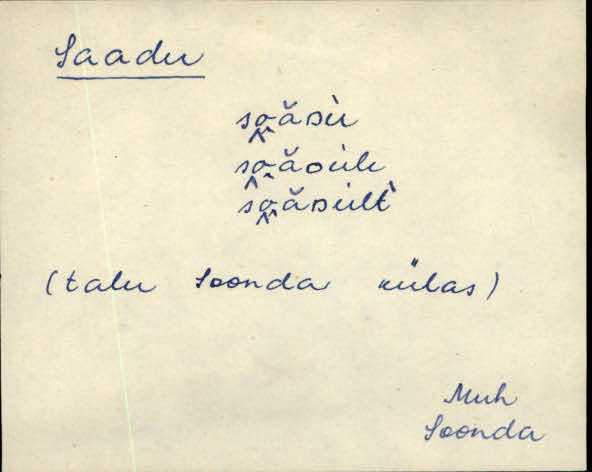 Saadu
so̭ăᴅù
so̭ăᴅùle
so̭ăᴅùlt̀
(talu Soonda külas)
Muh
Soonda